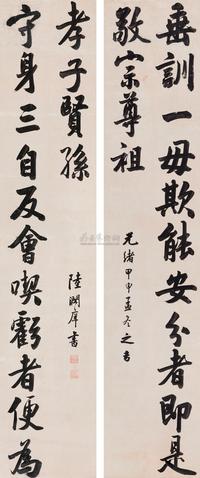 垂訓一毋欺能安分者即是
敬宗尊祖
光緒甲申孟冬之吉
守身三自反會喫虧者便為
孝子賢孫
陸潤庠書